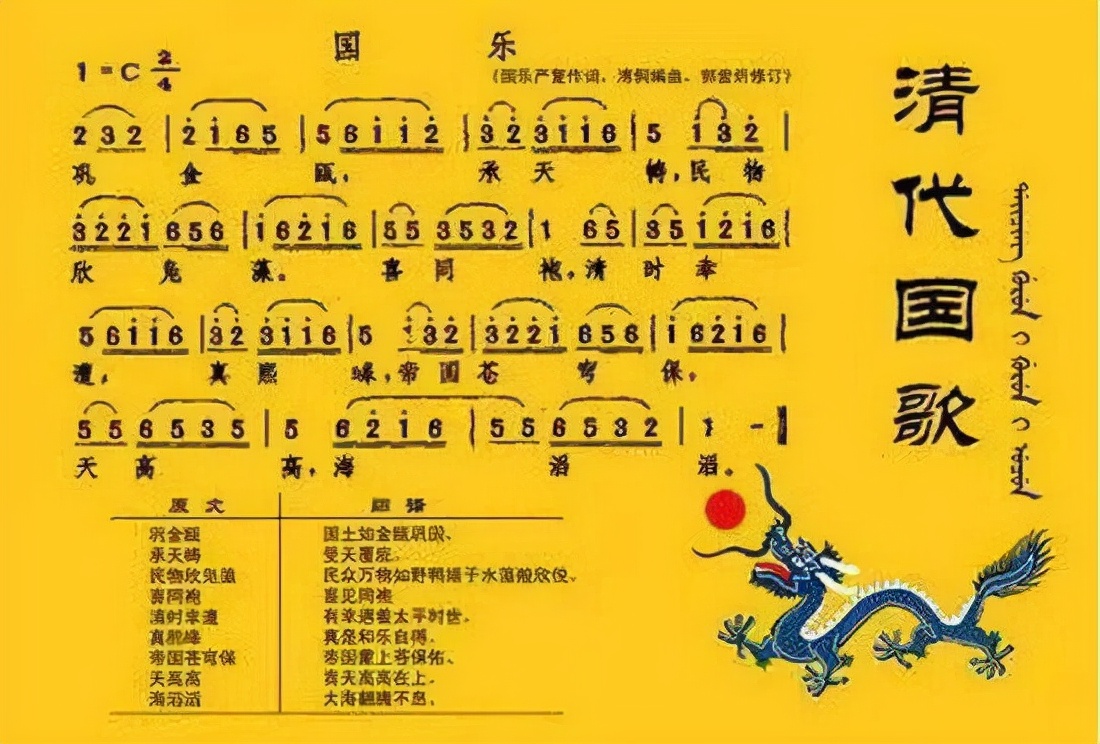 国 乐
1=C 2/4
(国乐严复作词、溥侗编曲、郭曾炘修订)
2 3 2 | 2 1 6 5 | 5 6 1 1 2 | 3 2 3 1 1 6 | 5 1 3 2 |
巩 金 瓯, 承 天 帱, 民 物
3 2 2 1 6 5 6 | 1 6 2 1 6 | 5 5 3 5 3 2 | 1 6 5 | 3 5 1 2 1 6 |
欣 凫 藻。 喜 同 袍, 清 时 幸
5 6 1 1 6 | 3 2 3 1 1 6 | 5 1 3 2 | 3 2 2 1 6 5 6 | 1 6 2 1 6 |
遭, 真 熙 皞, 帝 国 苍 穹 保。
5 5 6 5 3 5 | 5 6 2 1 6 | 5 5 6 5 3 2 | 1 - |
天 高 高, 海 滔 滔。
原文
巩金瓯 国土如金瓯巩固、
承天帱 受天覆
民物欣凫藻 民众万物如野鸭
喜同袍 喜见同袍
清时幸遭 有幸遇着太平时世、
真熙皞 真是和乐自得。
帝国苍穹保 帝国 上苍保佑、
天高高 苍天高高在上、
海滔滔 大海翻腾不息。
清代国歌